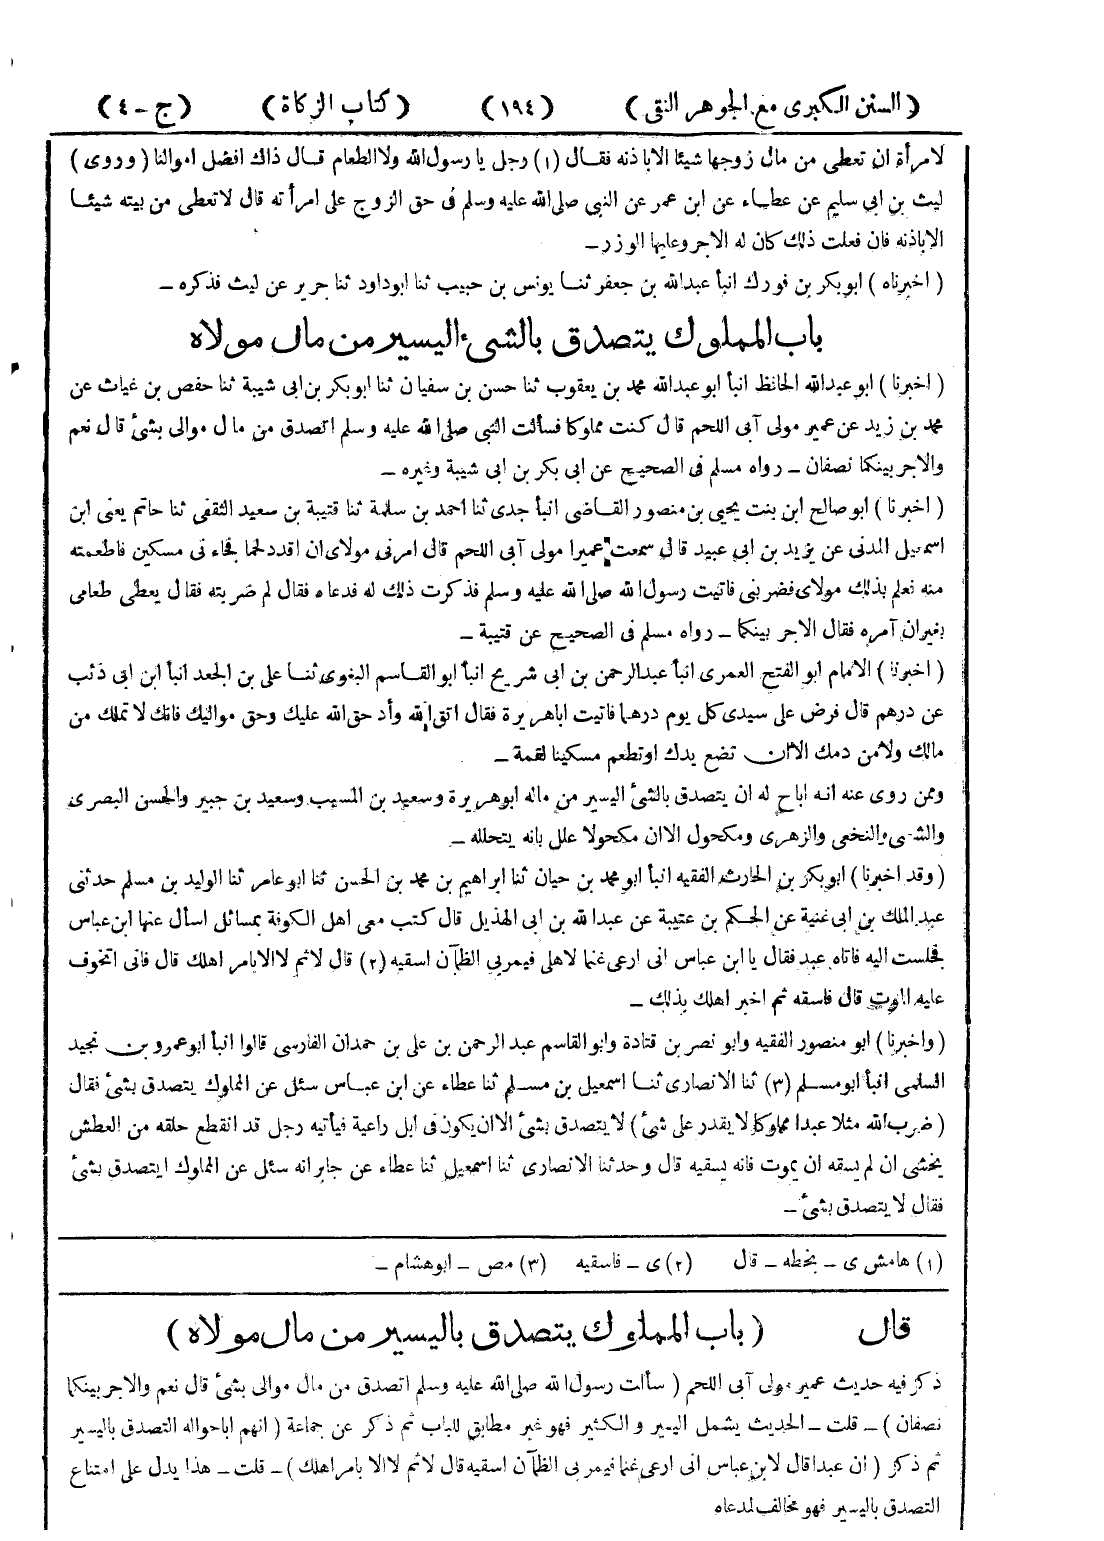 ( السنن الكبرى مع الجوهر النقى ) ( ١٩٤ ) ( كتاب الزكاة ) ( ج – ٤ )
لامرأة ان تعطى من مال زوجها شيئا الا باذنه فقال (١) رجل يا رسول الله ولا الطعام قال ذاك افضل اموالنا ( وروى )
ليث بن ابى سليم عن عطاء عن ابن عمر عن النبى صلى الله عليه وسلم فى حق الزوج على امرأته قال لا تعطى من بيته شيئا
الا باذنه فان فعلت ذلك كان له الاجر وعليها الوزر –
( اخبرناه ) ابوبكر بن فورك انبأ عبدالله بن جعفر ثنا يونس بن حبيب ثنا ابوداود ثنا جرير عن ليث فذكره –
باب المملوك يتصدق بالشئ اليسير من مال مولاه
( اخبرنا ) ابو عبدالله الحافظ انبأ ابو عبدالله محمد بن يعقوب ثنا حسن بن سفيان ثنا ابوبكر بن ابى شيبة ثنا حفص بن غياث عن
محمد بن زيد عن عمير مولى آبى اللحم قال كنت مملوكا فسألت النبى صلى الله عليه وسلم اتصدق من مال موالى بشئ قال نعم
والاجر بينكما نصفان – رواه مسلم فى الصحيح عن ابى بكر بن ابى شيبة وغيره –
( اخبرنا ) ابو صالح ابن بنت يحيى بن منصور القاضى انبأ جدى ثنا احمد بن سلمة ثنا قتيبة بن سعيد الثقفى ثنا حاتم يعنى ابن
اسمعيل المدنى عن يزيد بن ابى عبيد قال سمعت عميرا مولى آبى اللحم قال امرنى مولاى ان اقدد لحما فجاء نى مسكين فاطعمته
منه فعلم بذلك مولاى فضربنى فاتيت رسول الله صلى الله عليه وسلم فذكرت ذلك له فدعاه فقال لم ضربته فقال يعطى طعامى
بغير ان آمره فقال الاجر بينكما – رواه مسلم فى الصحيح عن قتيبة –
( اخبرنا ) الامام ابو الفتح العمرى انبأ عبدالرحمن بن ابى شريح انبأ ابو القاسم البغوى ثنا على بن الجعد انبأ ابن ابى ذئب
عن درهم قال فرض على سيدى كل يوم درهما فاتيت اباهريرة فقال اتق الله وأد حق الله عليك وحق مواليك فانك لا تملك من
مالك ولا من دمك الا ان تضع يدك او تطعم مسكينا لقمة –
وممن روى عنه انه اباح له ان يتصدق بالشئ اليسير من ماله ابو هريرة وسعيد بن المسيب وسعيد بن جبير والحسن البصرى
والشعبى والنخعى والزهرى ومكحول الا ان مكحولا علل بانه يتحلله –
( وقد اخبرنا ) ابوبكر بن الحارث الفقيه انبأ ابو محمد بن حيان ثنا ابراهيم بن محمد بن الحسن ثنا ابو عامر ثنا الوليد بن مسلم حدثنى
عبد الملك بن ابى غنية عن الحكم بن عتيبة عن عبد الله بن ابى الهذيل قال كتب معى اهل الكوفة بمسائل اسأل عنها ابن عباس
فجلست اليه فاتاه عبد فقال يا ابن عباس انى ارعى غنما لاهلى فيمر بى الظمآن اسقيه (٢) قال لا ثم لا الا بامر اهلك قال فانى اتخوف
عليه الموت قال فاسقه ثم اخبر اهلك بذلك –
( واخبرنا ) ابو منصور الفقيه وابو نصر بن قتادة وابو القاسم عبد الرحمن بن على بن حمدان الفارسى قالوا انبأ ابو عمرو بن نجيد
السلمى انبأ ابو مسلم (٣) ثنا الانصارى ثنا اسمعيل بن مسلم ثنا عطاء عن ابن عباس سئل عن المملوك يتصدق بشئ فقال
( ضرب الله مثلا عبدا مملوكا لا يقدر على شئ ) لا يتصدق بشئ الا ان يكون فى ابل راعية فيأتيه رجل قد انقطع حلقه من العطش
يخشى ان لم يسقه ان يموت فانه يسقيه قال وحدثنا الانصارى ثنا اسمعيل ثنا عطاء عن جابر انه سئل عن المملوك ايتصدق بشئ
فقال لا يتصدق بشئ –
(١) هامش ى – بخطه – قال (٢) ى – فاسقيه (٣) مص – ابو هشام –
قال ( باب المملوك يتصدق باليسير من مال مولاه )
ذكر فيه حديث عمير مولى آبى اللحم ( سألت رسول الله صلى الله عليه وسلم اتصدق من مال موالى بشئ قال نعم والاجر بينكما
نصفان ) – قلت – الحديث يشمل اليسير والكثير فهو غير مطابق للباب ثم ذكر عن جماعة ( انهم اباحوا له التصدق باليسير
ثم ذكر ( ان عبدا قال لابن عباس انى ارعى غنما فيمر بى الظمآن اسقيه قال لا ثم لا الا بامر اهلك ) – قلت – هذا يدل على امتناع
التصدق باليسير فهو مخالف لمدعاه